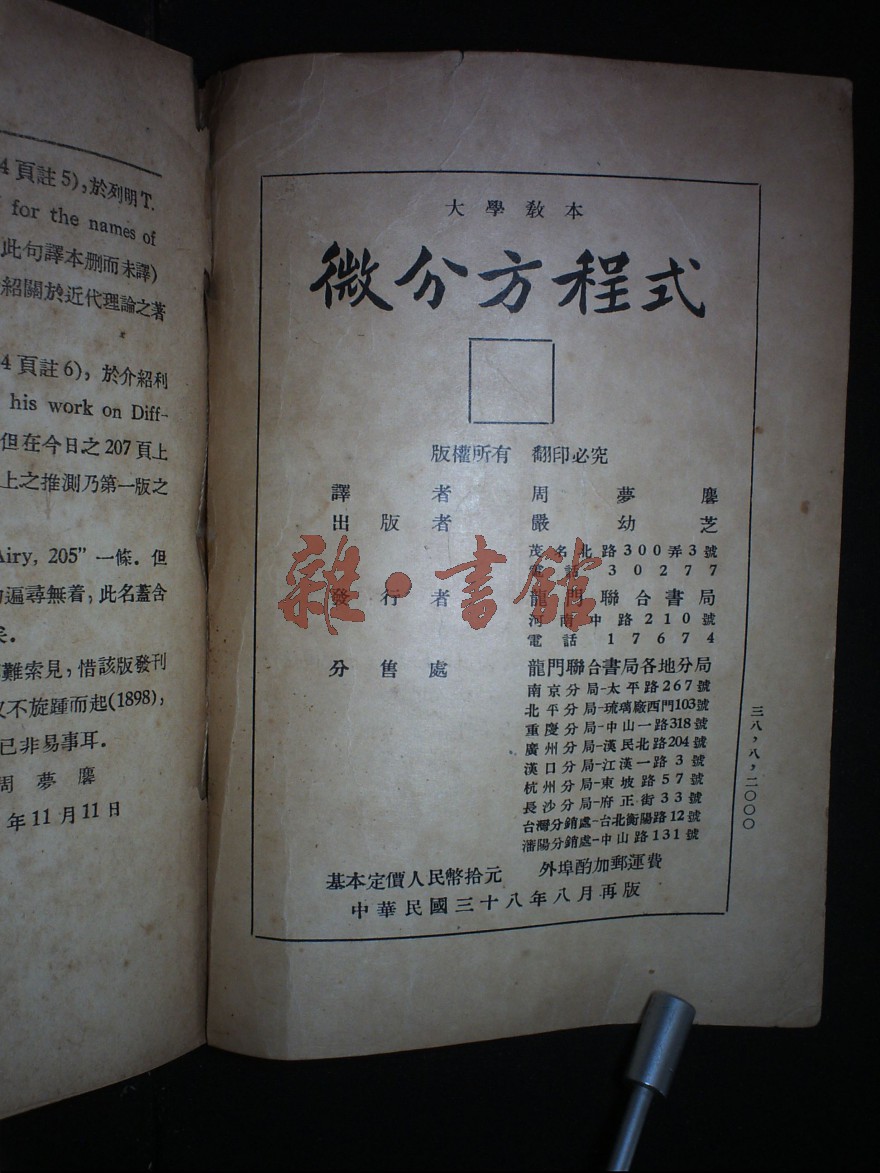 4 頁註 5), 於列明 T.
for the names of
此句譯本删而未譯)
紹關於近代理論之著
4 頁註 6), 於介紹利
his work on Diff-
但在今日之 207 頁上
上之推測乃第一版之
Airy, 205” 一條. 但
遍尋無着, 此名蓋含
難索見, 惜該版發刊
又不旋踵而起(1898),
已非易事耳.
周夢麐
年 11 月 11 日
大學敎本
微分方程式
版權所有 翻印必究
譯者 周夢麐
出版者 嚴幼芝
茂名北路300弄3號
電話 30277
發行者 龍門聯合書局
河南中路210號
電話 17674
分售處 龍門聯合書局各地分局
南京分局-太平路267號
北平分局-琉璃廠西門103號
重慶分局-中山一路318號
廣州分局-漢民北路204號
漢口分局-江漢一路3號
杭州分局-東坡路57號
長沙分局-府正街33號
台灣分銷處-台北衡陽路12號
瀋陽分銷處-中山路131號
基本定價人民幣拾元 外埠酌加郵運費
中華民國三十八年八月再版
三八,八,二〇〇〇
雜·書館